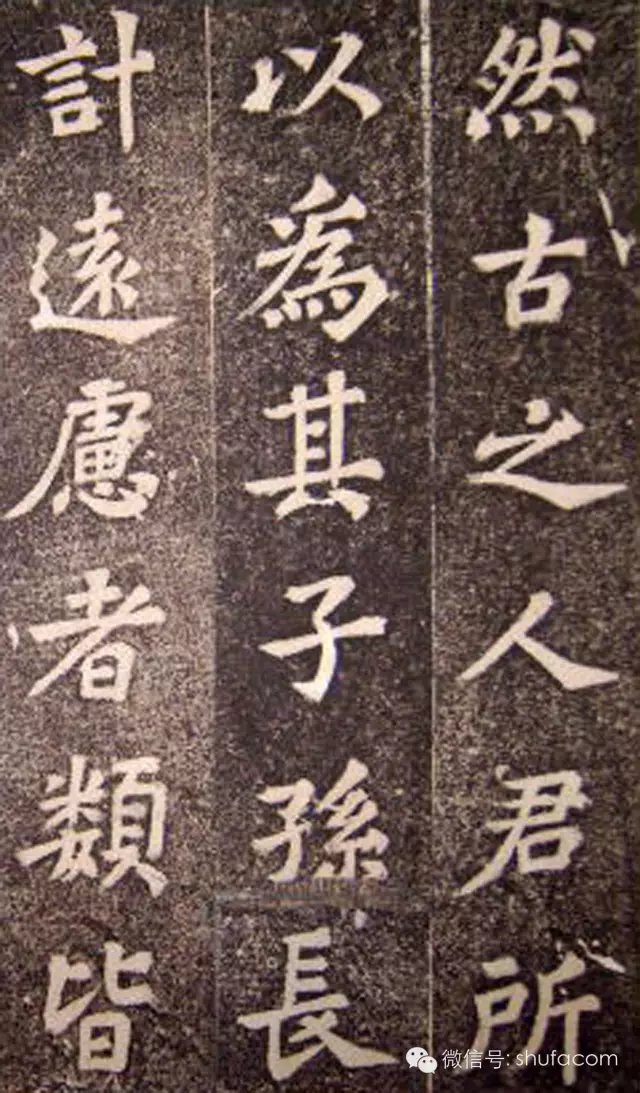 然古之人君所
以為其子孫長
計遠慮者類皆
微信号: shufacom